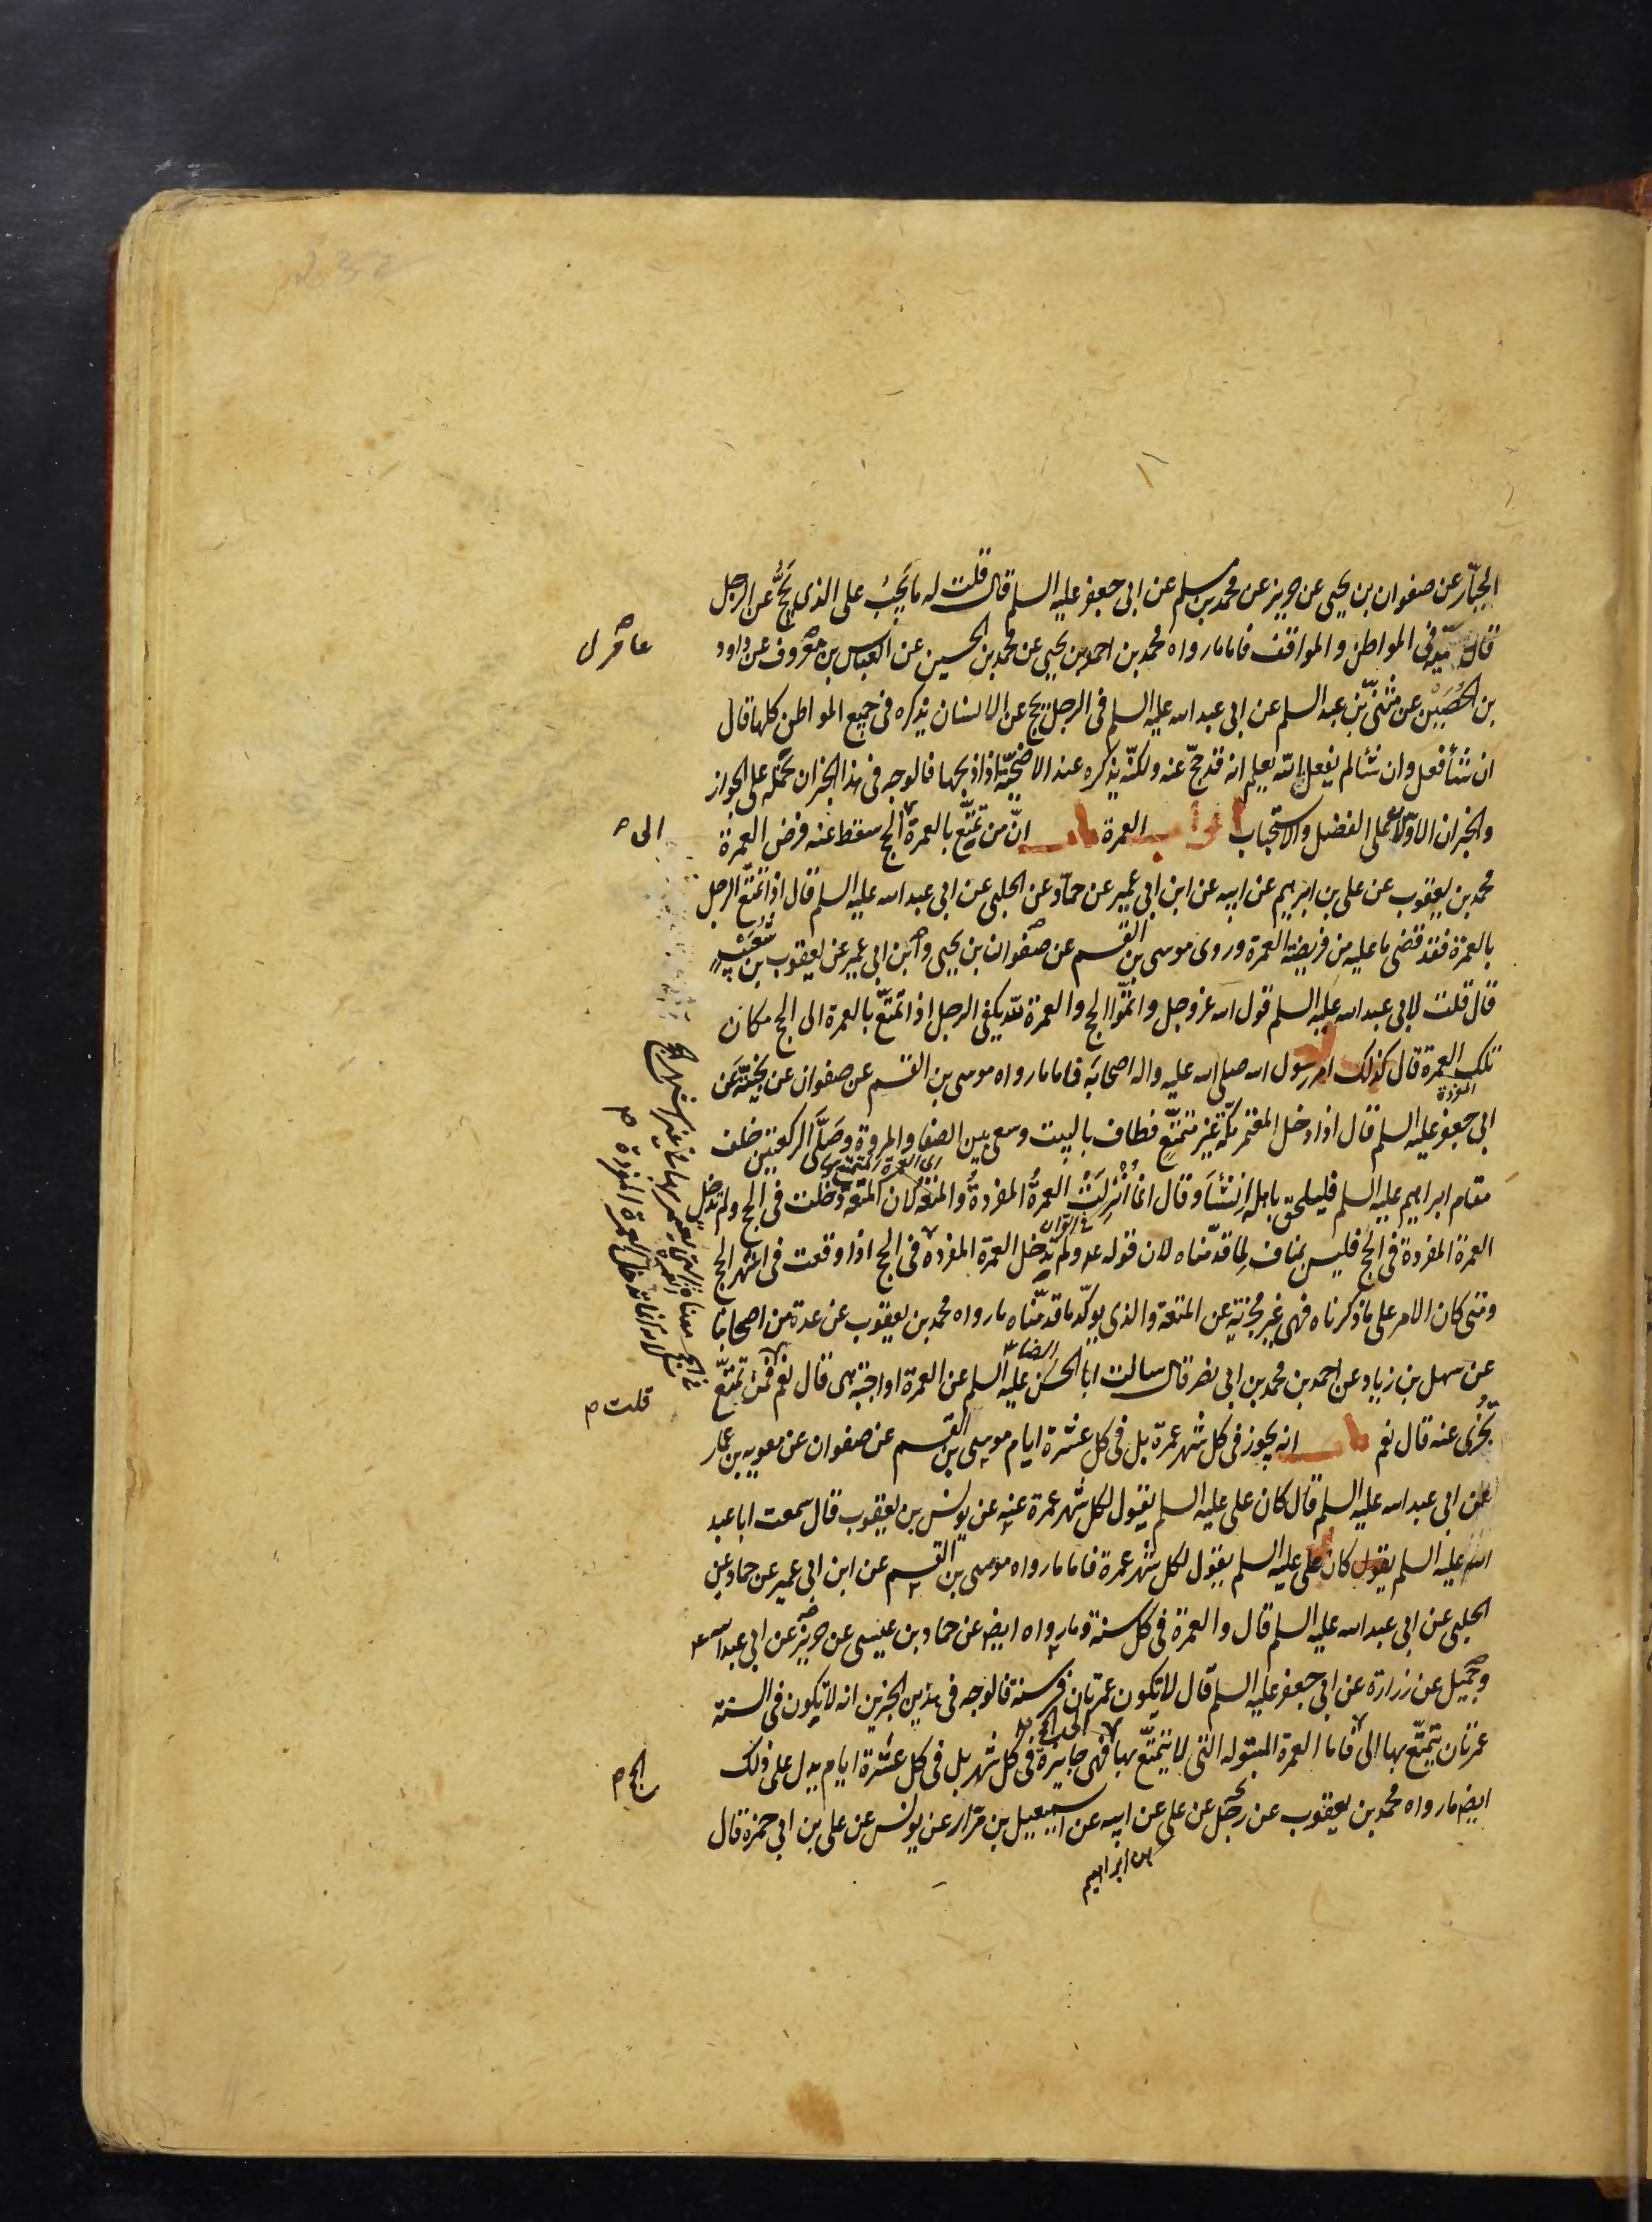 الجبّار عن صفوان بن يحيى عن حريز عن محمد بن مسلم عن ابى جعفر عليه السلم قال قلت له ما يَجِبُ على الذى يَحُجُّ عن الرجل
قال يسمّيه فى المواطن والمواقف فاما ما رواه محمد بن احمد بن يحيى عن محمد بن الحسين عن العباس بن معروف عن داود
بن الحُصَيْن عن مثنّى بن عبد السلم عن ابى عبد الله عليه السلم فى الرجل يحج عن الانسان يذكره فى جميع المواطن كلها قال
ان شأ فعل وان شأ لم يفعل الله يعلم انه قد حجّ عنه ولكنّه يذكره عند الاضحيّة اذا ذبحها فالوجه فى هذا الخبر ان نحمله على الجواز
والخبران الاوّلان على الفضل والاستحباب ابواب العمرة باب انّ من تمتّع بالعمرة الحج سقط عنه فرض العمرة
محمد بن يعقوب عن على بن ابرهيم عن ابيه عن ابن ابى عمير عن حمّاد عن الحلبى عن ابى عبد الله عليه السلم قال اذا تمتّع الرجل
بالعمرة فقد قضى ما عليه من فريضة العمرة وروى موسى بن القسم عن صفوان بن يحيى وابن ابى عمير عن يعقوب بن شُعَيْب
قال قلت لابى عبد الله عليه السلم قول الله عز وجل واتمّوا الحج والعمرة لله يكفى الرجل اذا تمتّع بالعمرة الى الحج مكان
تلك العمرة قال كذلك امر رسول الله صلى الله عليه واله اصحابَه فاما ما رواه موسى بن القسم عن صفوان عن نجيّة عن
المفردة
ابى جعفر عليه السلم قال اذا دخل المعتمر مكّة غير متمتّعٍ فطاف بالبيت وسعى بين الصفا والمروة وصَلّى الركعتين خلف
مقام ابراهيم عليه السلم فليلحق باهله ان شَأ وقال انما اُنْزِلَتْ العمرةُ المفردةُ والمتعة لان المتعة دَخَلت فى الحج ولم تدخل
العمرة المفردة فى الحج فليس بمناف لما قدّمناه لان قوله ع ولم تدخل العمرة المفردة فى الحج اذا وقعت فى اشهر الحج
ومتى كان الامر على ما ذكرناه فهى غير مجزئة عن المتعة والذى يوكّد ما قدّمناه ما رواه محمد بن يعقوب عن عدة من اصحابنا
الرضا
عن سهل بن زياد عن احمد بن محمد بن ابى نصر قال سالت ابا الحسن عليه السلم عن العمرة اواجبة هى قال نعم فمن تمتّع
يُجْزى عنه قال نعم باب انه يجوز فى كل شهر عمرة بل فى كل عشرة ايام موسى بن القسم عن صفوان عن معوية بن عمار
عن ابى عبد الله عليه السلم قال كان على عليه السلم يقول لكل شهر عمرة عنه عن يونس بن يعقوب قال سمعت ابا عبد
الله عليه السلم يقول كان على عليه السلم يقول لكل شهر عمرة فاما ما رواه موسى بن القسم عن ابن ابى عمير عن حماد عن
الحلبى عن ابى عبد الله عليه السلم قال والعمرة فى كل سنة وما رواه ايضا عن حماد بن عيسى عن حريز عن ابى عبد الله ع
وجميل عن زرارة عن ابى جعفر عليه السلم قال لا يكون عمرتان فى سنة فالوجه فى هذين الخبرين انه لا يكون فى السنة
عمرتان يتمتّع بها الى فاما العمرة المبتولة التى لا يتمتّع بها فهى جايزة فى كل شهر بل فى كل عشرة ايام يدل على ذلك
ايضا ما رواه محمد بن يعقوب عن رجل عن على عن ابيه عن اسمعيل بن مرّار عن يونس عن على بن ابى حمزة قال
بن ابراهيم
الى
قلت م
الحج م